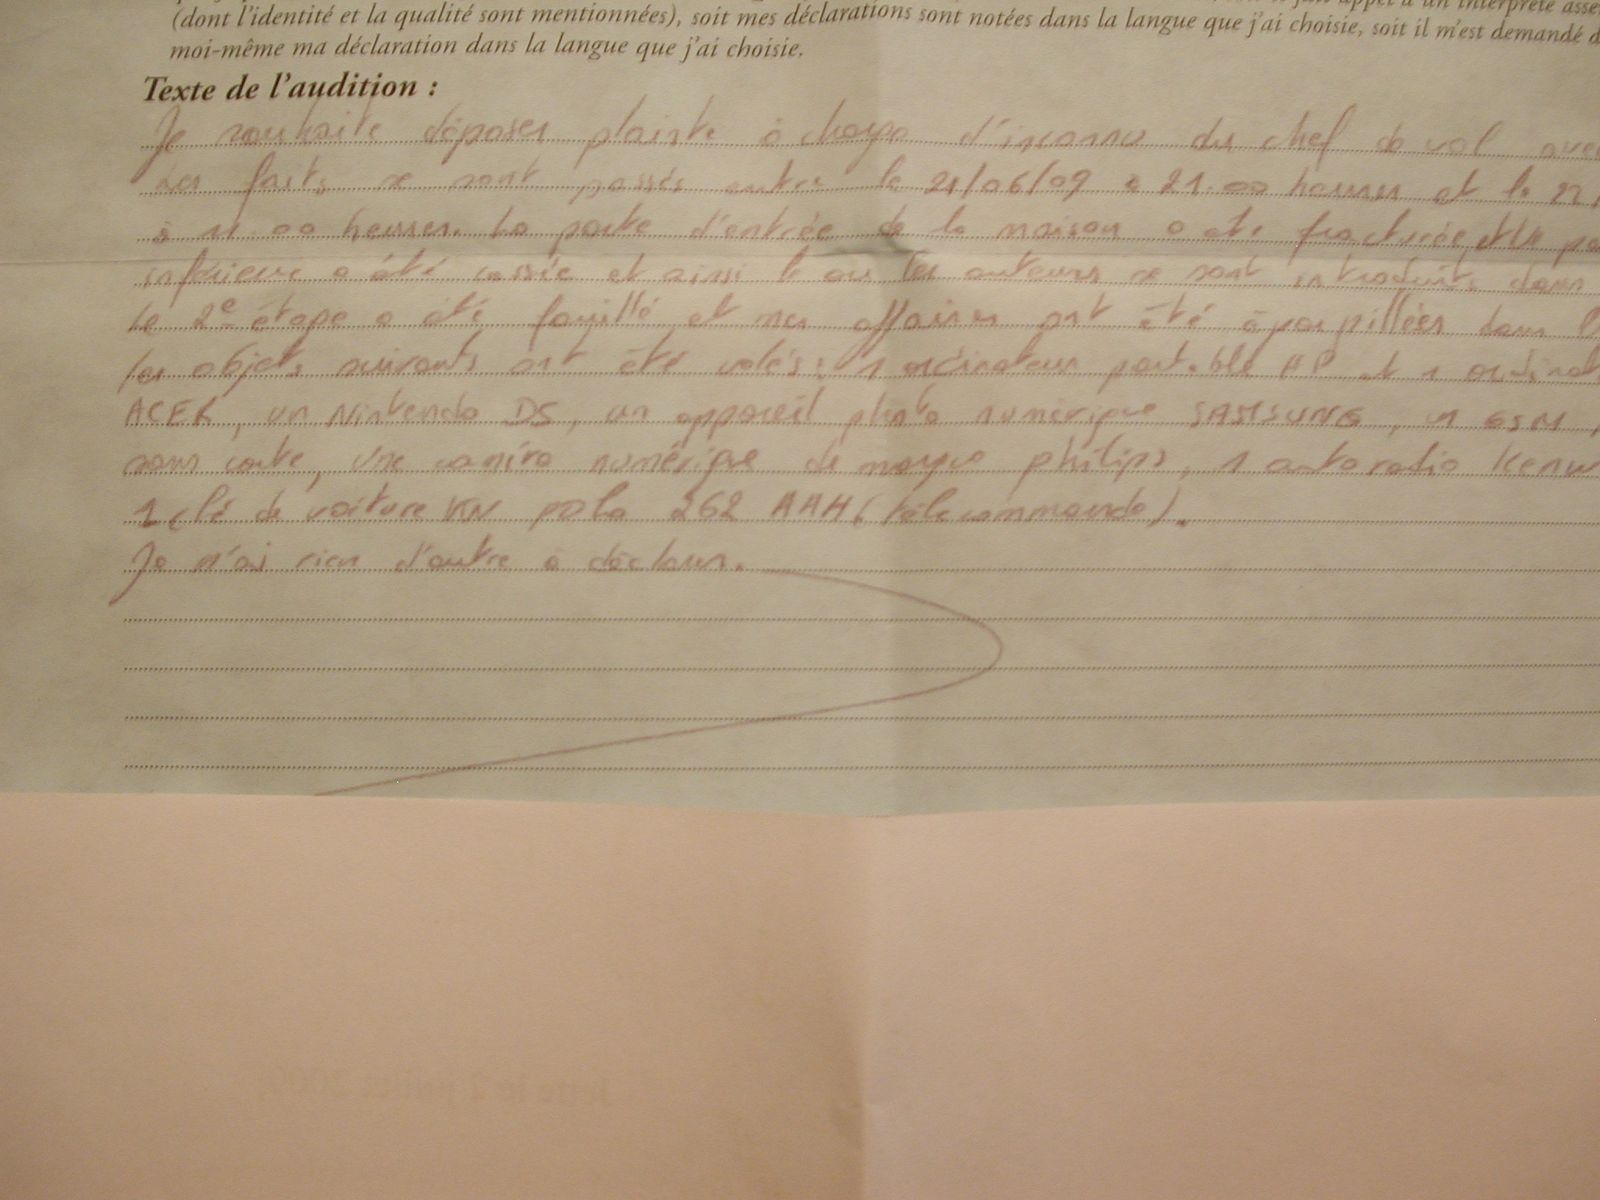 (dont l'identité et la qualité sont mentionnées), soit mes déclarations sont notées dans la langue que j'ai choisie, soit il m'est demandé d
moi-même ma déclaration dans la langue que j'ai choisie.
Texte de l'audition :
Je souhaite déposer plainte à charge d'inconnu du chef de vol avec
Les faits se sont passés entre le 21/06/09 à 21.00 heures et le 22
à 11.00 heures. La porte d'entrée de la maison a été fracturée et
inférieure a été cassée et ainsi le ou les auteurs se sont introduits dans
le 2e étage a été fouillé et mes affaires ont été éparpillées dans
les objets suivants ont été volés : 1 ordinateur portable HP et 1 ordinat
ACER, un Nintendo DS, un appareil photo numérique SAMSUNG, un GSM,
sans carte, une caméra numérique de marque philips, 1 autoradio Kenw
1 clé de voiture VW 262 AAH (télécommande).
Je n'ai rien d'autre à déclarer.